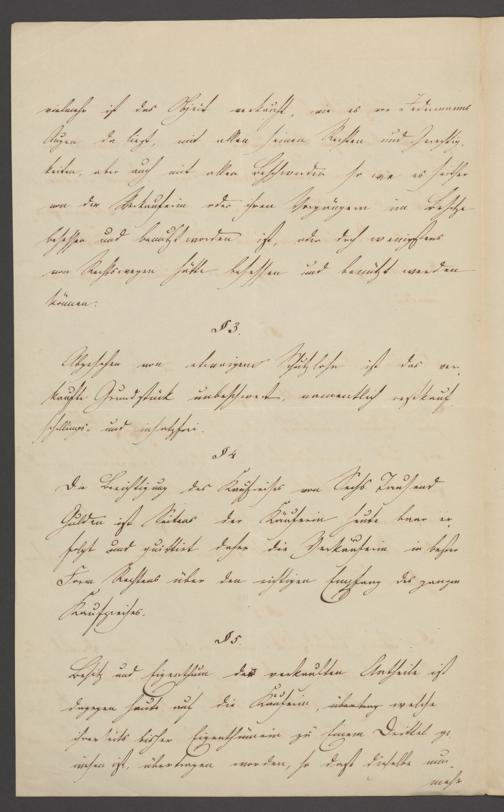 vielmehr ist das Objeit verkauft, wie es vor Jedermanns
Augen da liegt, mit allen seinen Rechten und Gerechtig-
keiten, aber auch mit allen Beschwerden so wie es seither
von der Verkäuferin oder ihren Vorgängern im Besitze
besessen und benutzt worden ist, oder doch wenigstens
von Rechtswegen hätte besessen und benützt werden
können.
§ 3.
Abgesehen von etwaigem Schutzlohn ist das ver-
kaufte Grundstück unbeschwert, namentlich restkauf
schillings- und insatzfrei.
§ 4
Die Berichtigung des Kaufpreises von Sechs Tausend
Gulden ist Seitens der Käuferin heute baar er-
folgt und quittirt daher die Verkäuferin in bester
Form Rechtens über den richtigen Empfang des ganzen
Kaufpreises.
§ 5.
Besitz und Eigenthum des verkauften Antheils ist
dagegen heute auf die Käuferin, welche
ihrerseits bisher Eigenthümerin zu Einem Drittel ge-
wesen ist, übertragen worden, so daß dieselbe nun-
mehr